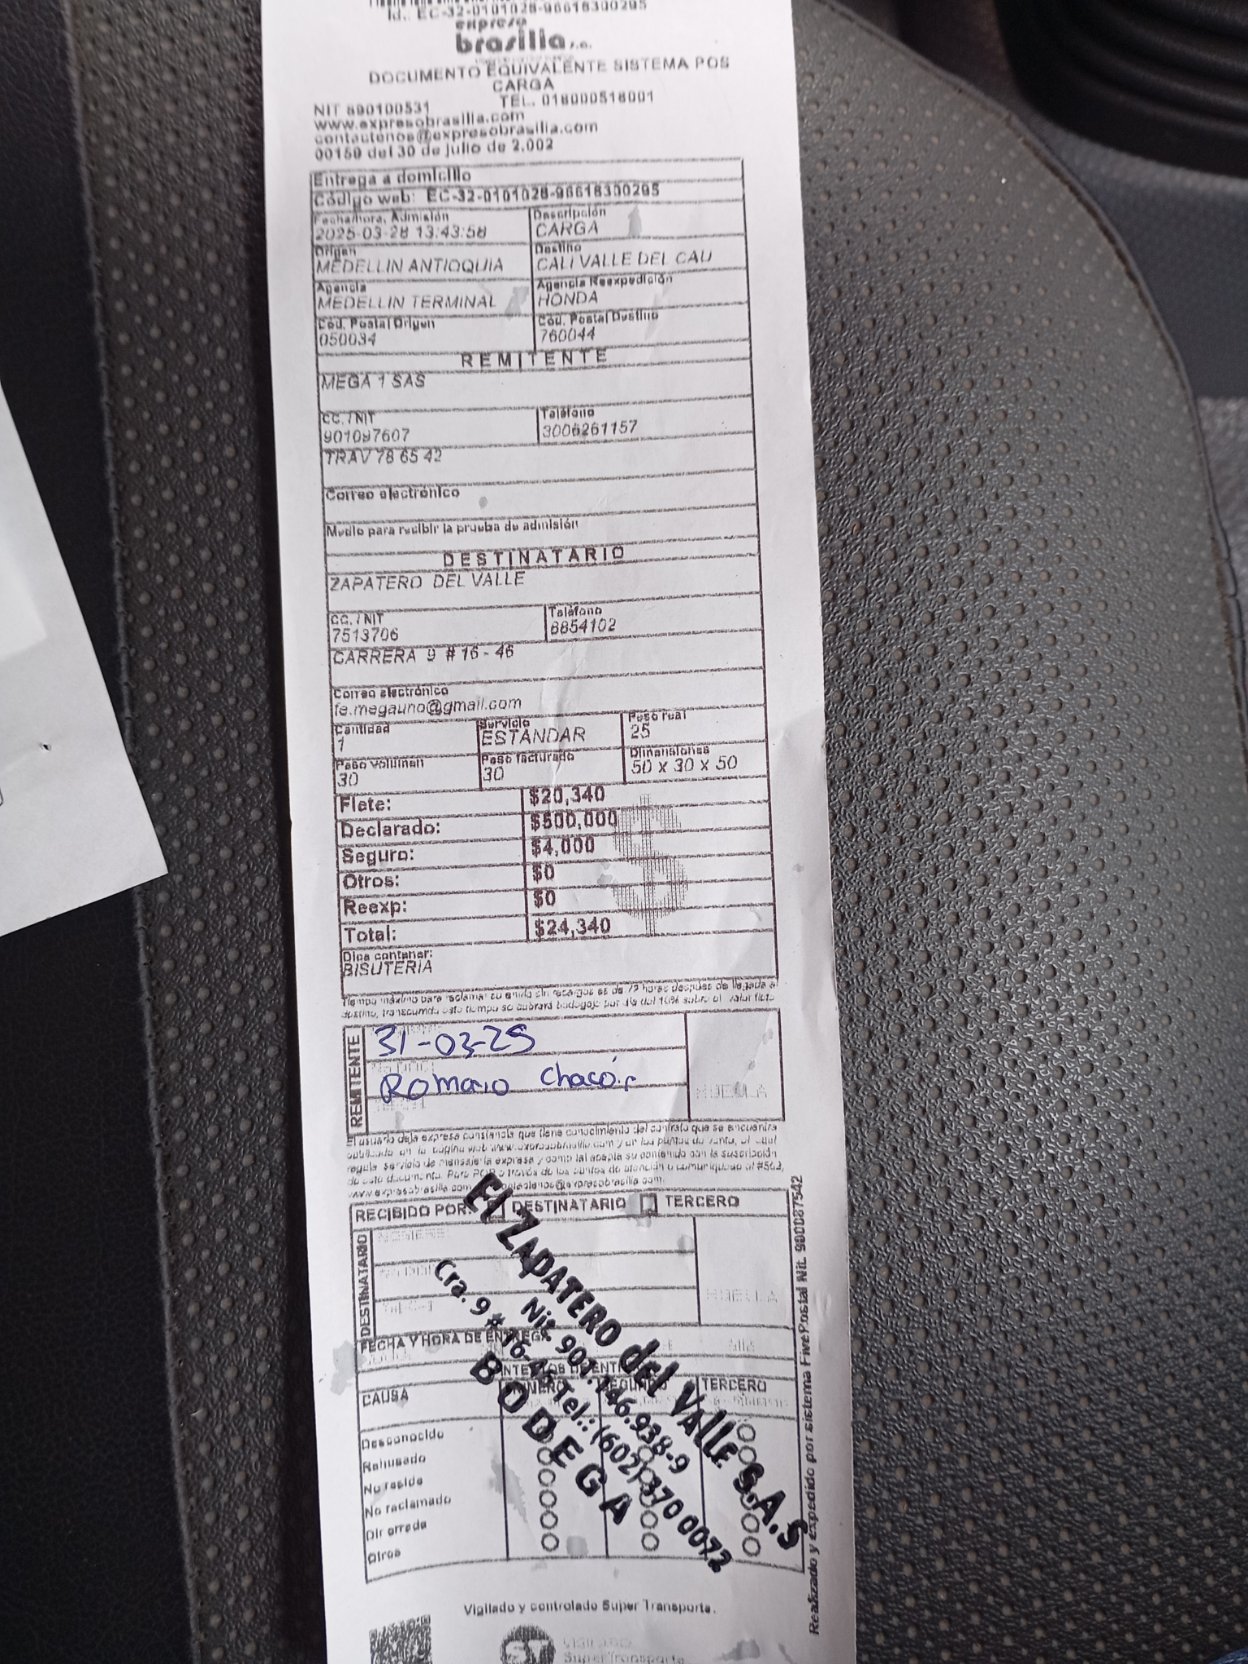 Id.: EC-32-0101028-96618300295
expreso
brasilia s.a.
DOCUMENTO EQUIVALENTE SISTEMA POS
CARGA
NIT 890100531 TEL. 018000518001
www.expresobrasilia.com
contactenos@expresobrasilia.com
00150 del 30 de julio de 2.002
Entrega a domicilio
Código web: EC-32-0101028-96618300295
Fecha/hora, Admisión Descripción
2025-03-28 13:43:58 CARGA
Origen Destino
MEDELLIN ANTIOQUIA CALI VALLE DEL CAU
Agencia Agencia Reexpedición
MEDELLIN TERMINAL HONDA
Cód. Postal Origen Cód. Postal Destino
050034 760044
REMITENTE
MEGA 1 SAS
CC. / NIT Teléfono
901097607 3006261157
TRAV 78 65 42
Correo electrónico
Medio para recibir la prueba de admisión
DESTINATARIO
ZAPATERO DEL VALLE
CC. / NIT Teléfono
7513706 8854102
CARRERA 9 # 16 - 46
Correo electrónico
fe.megauno@gmail.com
Cantidad Servicio Peso real
1 ESTANDAR 25
Peso volumen Peso facturado Dimensiones
30 30 50 x 30 x 50
Flete: $20,340
Declarado: $500,000
Seguro: $4,000
Otros: $0
Reexp: $0
Total: $24,340
Dice contener:
BISUTERIA
Tiempo máximo para reclamar su envío sin recargos es de 72 horas después de llegada a
destino, transcurrido este tiempo se cobrará bodegaje por día del 10% sobre el valor flete
REMITENTE
31-03-25
Romario Chacón
HUELLA
El usuario deja expresa constancia que tiene conocimiento del contrato que se encuentra
publicado en la pagina web www.expresobrasilia.com y en los puntos de venta, el cual
regula servicio de mensajería expresa y como tal acepta su contenido con la suscripción
de este documento. Para PQR a través de los puntos de atención o comuníquese al #502,
www.expresobrasilia.com contactenos@expresobrasilia.com
RECIBIDO POR: DESTINATARIO TERCERO
DESTINATARIO
NOMBRE
HUELLA
FECHA Y HORA DE ENTREGA
CAUSA TERCERO
Desconocido
Rehusado
No reside
No reclamado
Dir errada
Otros
El ZAPATERO del VALLE S.A.S
Nit. 901.146.938-9
Cra. 9 # 16-46 Tel.: (602) 370 0072
BODEGA
Realizado y expedido por sistema FivePostal Nit. 900087542
Vigilado y controlado Super Transporte.
VIGILADO
SuperTransporte